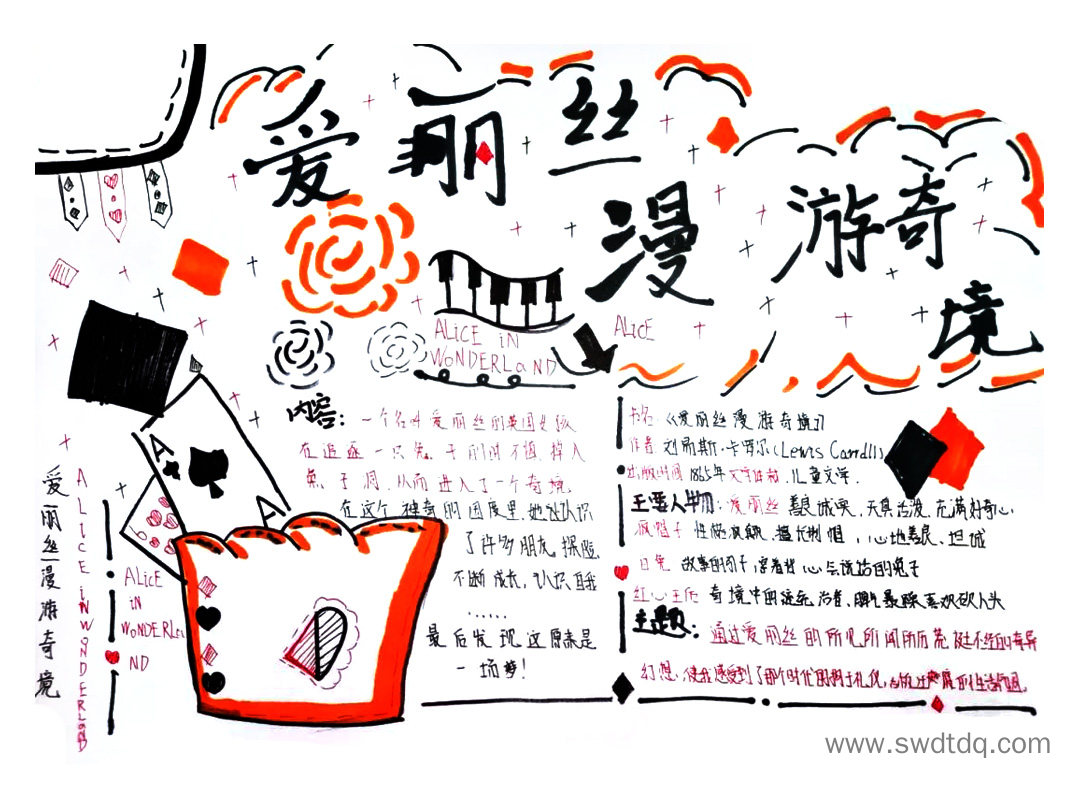 爱丽丝
漫游奇
境
ALiCE iN
WONDERLaND
ALiCE
内容：一个名叫爱丽丝的英国女孩
在追逐一只兔子时时不慎掉入
兔子洞，从而进入了一个奇境，
在这个神奇的国度里，她认识
了许多朋友，探险，
不断成长，认识自我
……
最后发现这原来是
一场梦！
书名《爱丽丝漫游奇境》
作者 刘易斯·卡罗尔（Lewis Carroll）
出版时间 1865年 儿童文学．
主要人物：爱丽丝 善良诚实，天真活泼，充满好奇心．
疯帽子 性格疯癫，擅长制帽，心地善良、坦诚
白兔 故事的引子，穿着背心会说话的兔子
红心王后 奇境中的统治者，脾气暴躁，喜欢砍人头
主题：通过爱丽丝的所见所闻所而荒诞不经的奇异
幻想，使我感受到了那个时代的绅士礼仪，
A
A
6
爱丽丝漫游奇境
ALICE iN WONDERLaND
ALiCE
iN
WONDERLa
ND
www.swdtdq.com